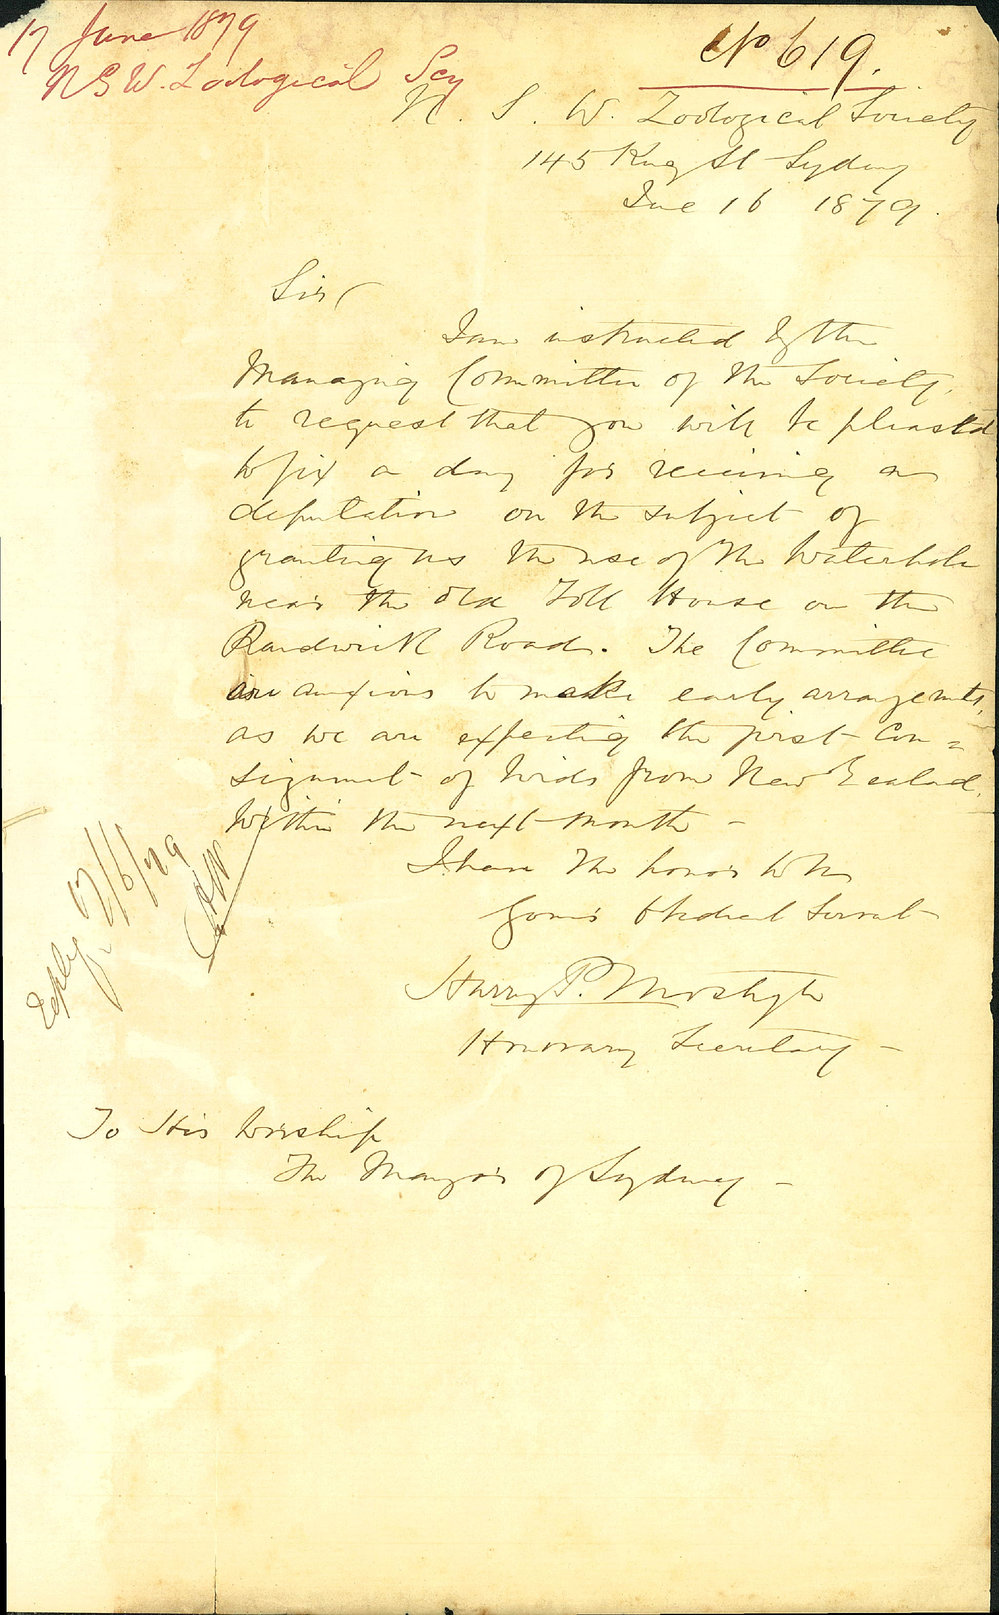 17 June 1879
NSW. Zoological Scy
No 619.
N. S. W. Zoological Society
145 King St Sydney
June 16 1879.
Sir
I am instructed by the
Managing Committee of the Society,
to request that you will be pleased
to fix a day for receiving a
deputation on the subject of
granting us the use of the Waterhole
near the Old Toll House on the
Randwick Road. The Committee
are anxious to make early arrangements,
as we are expecting the first Con=
signment of birds from New Zealand,
within the next month -
I have the honor to be
Your obedient Servant
Harry P.
Honorary Secretary -
To His Worship
The Mayor of Sydney -
Reply 17/6/79